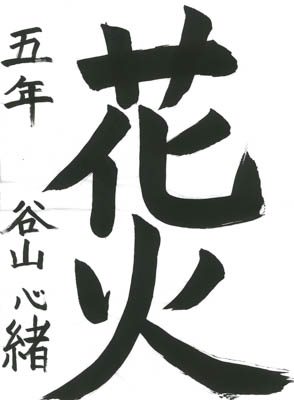 花火
五年 谷山心緒